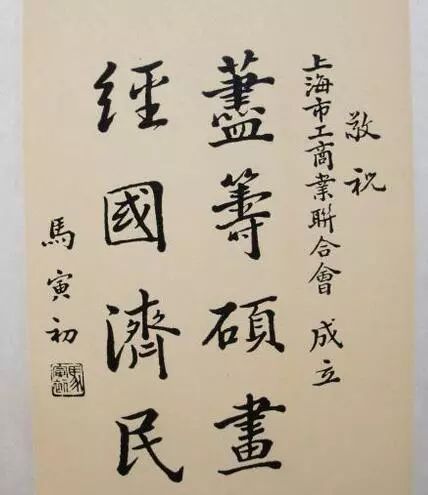 敬祝
上海市工商業聯合會 成立
藎籌碩畫
經國濟民
馬寅初
馬寅初